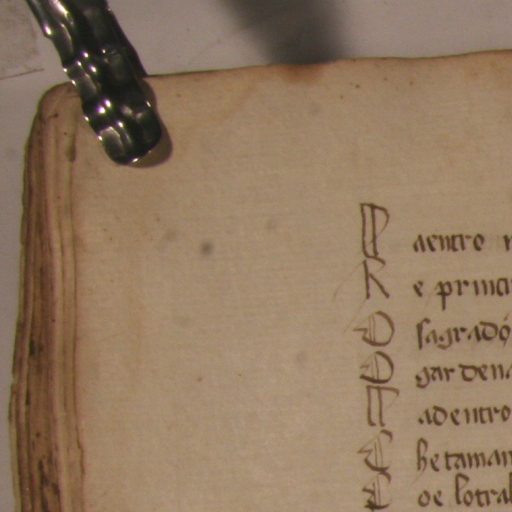 P aentro
R e princi
O sagradó
O gardena
N adentro
E hetaman
E oe lotral